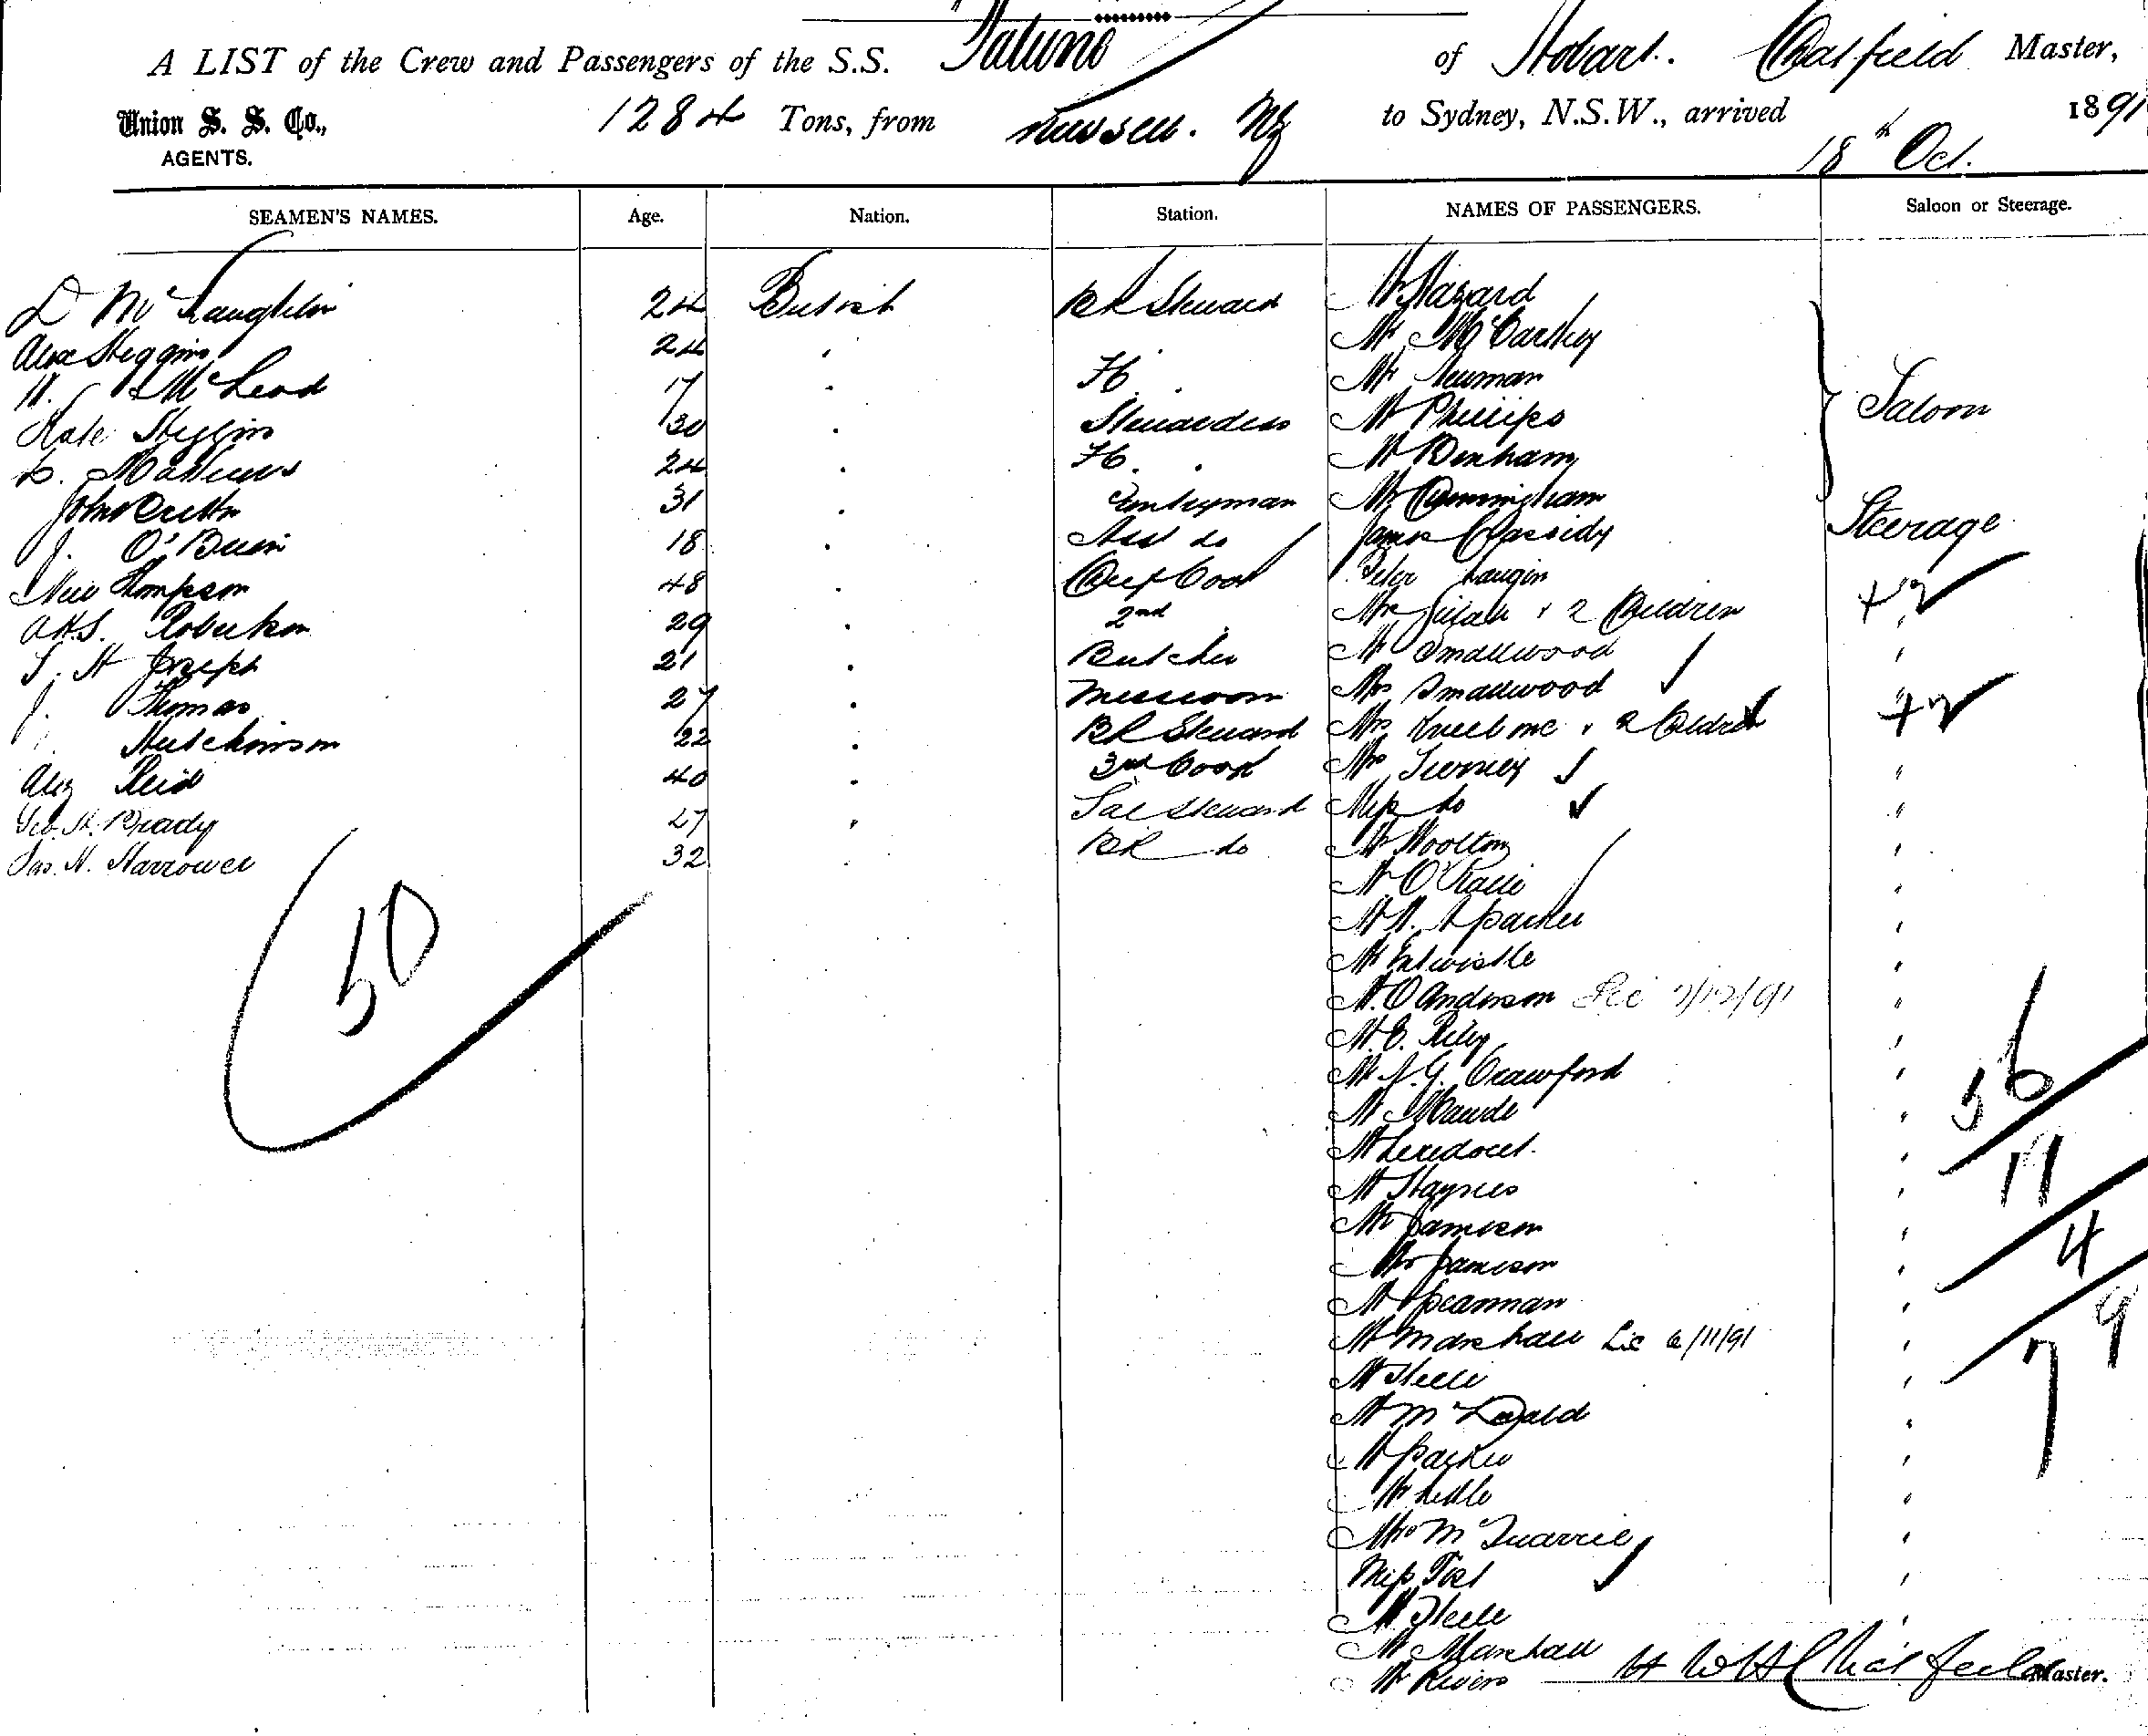 A LIST of the Crew and Passengers of the S.S. of Hobart. Chatfield Master,
Union S. S. Co., 1284 Tons, from Russell. NZ to Sydney, N.S.W., arrived 18th Oct. 1891
AGENTS.
SEAMEN'S NAMES. Age. Nation. Station. NAMES OF PASSENGERS. Saloon or Steerage.
D McLaughlin 24 British BR Steward Mr Hazard
Alex Steggins 24 " Mr McCarthy
McLeod 17 " Mr Newman
Kate Steggins 30 " Stewardess Mr Phillips Saloon
Mathews 24 " Mr Benham
John 31 " Pantryman Mr Cunningham
J. O'Brien 18 " Asst do James Cassidy Steerage
Thompson 48 " Chief Cook Peter +2
A.H.S. Robertson 29 " 2nd " Mrs & 2 Children "
S. H Joseph 21 " Butcher Mr Smallwood "
J. Thomas 27 " Messroom Mrs Smallwood " +2
Hutchinson 22 " BR Steward Mrs & 2 Children
Alex Reid 40 " 3rd Cook Mrs "
Geo. H. Brady 27 " Sal Steward Miss do "
Jas. H. Harrower 32 " BR do Mr Woolton "
Mr "
50
Mr Parker "
Mr Entwistle "
Mr O Anderson "
Mr E. Riley "
Mr J. G. Crawford " 56
Mr Maude "
Mr " 11
Mr Haynes "
Mr Jamieson " 4
Mrs Jamieson "
Mr Spearman " 9
Mr Marshall Lic 6/11/91 "
Mr Steele " 7
Mr "
Mr Parker "
Mr "
Mrs McQuarrie "
Miss "
Mr Steele "
Mr Marshall
Mr Rivers Chatfield Master.